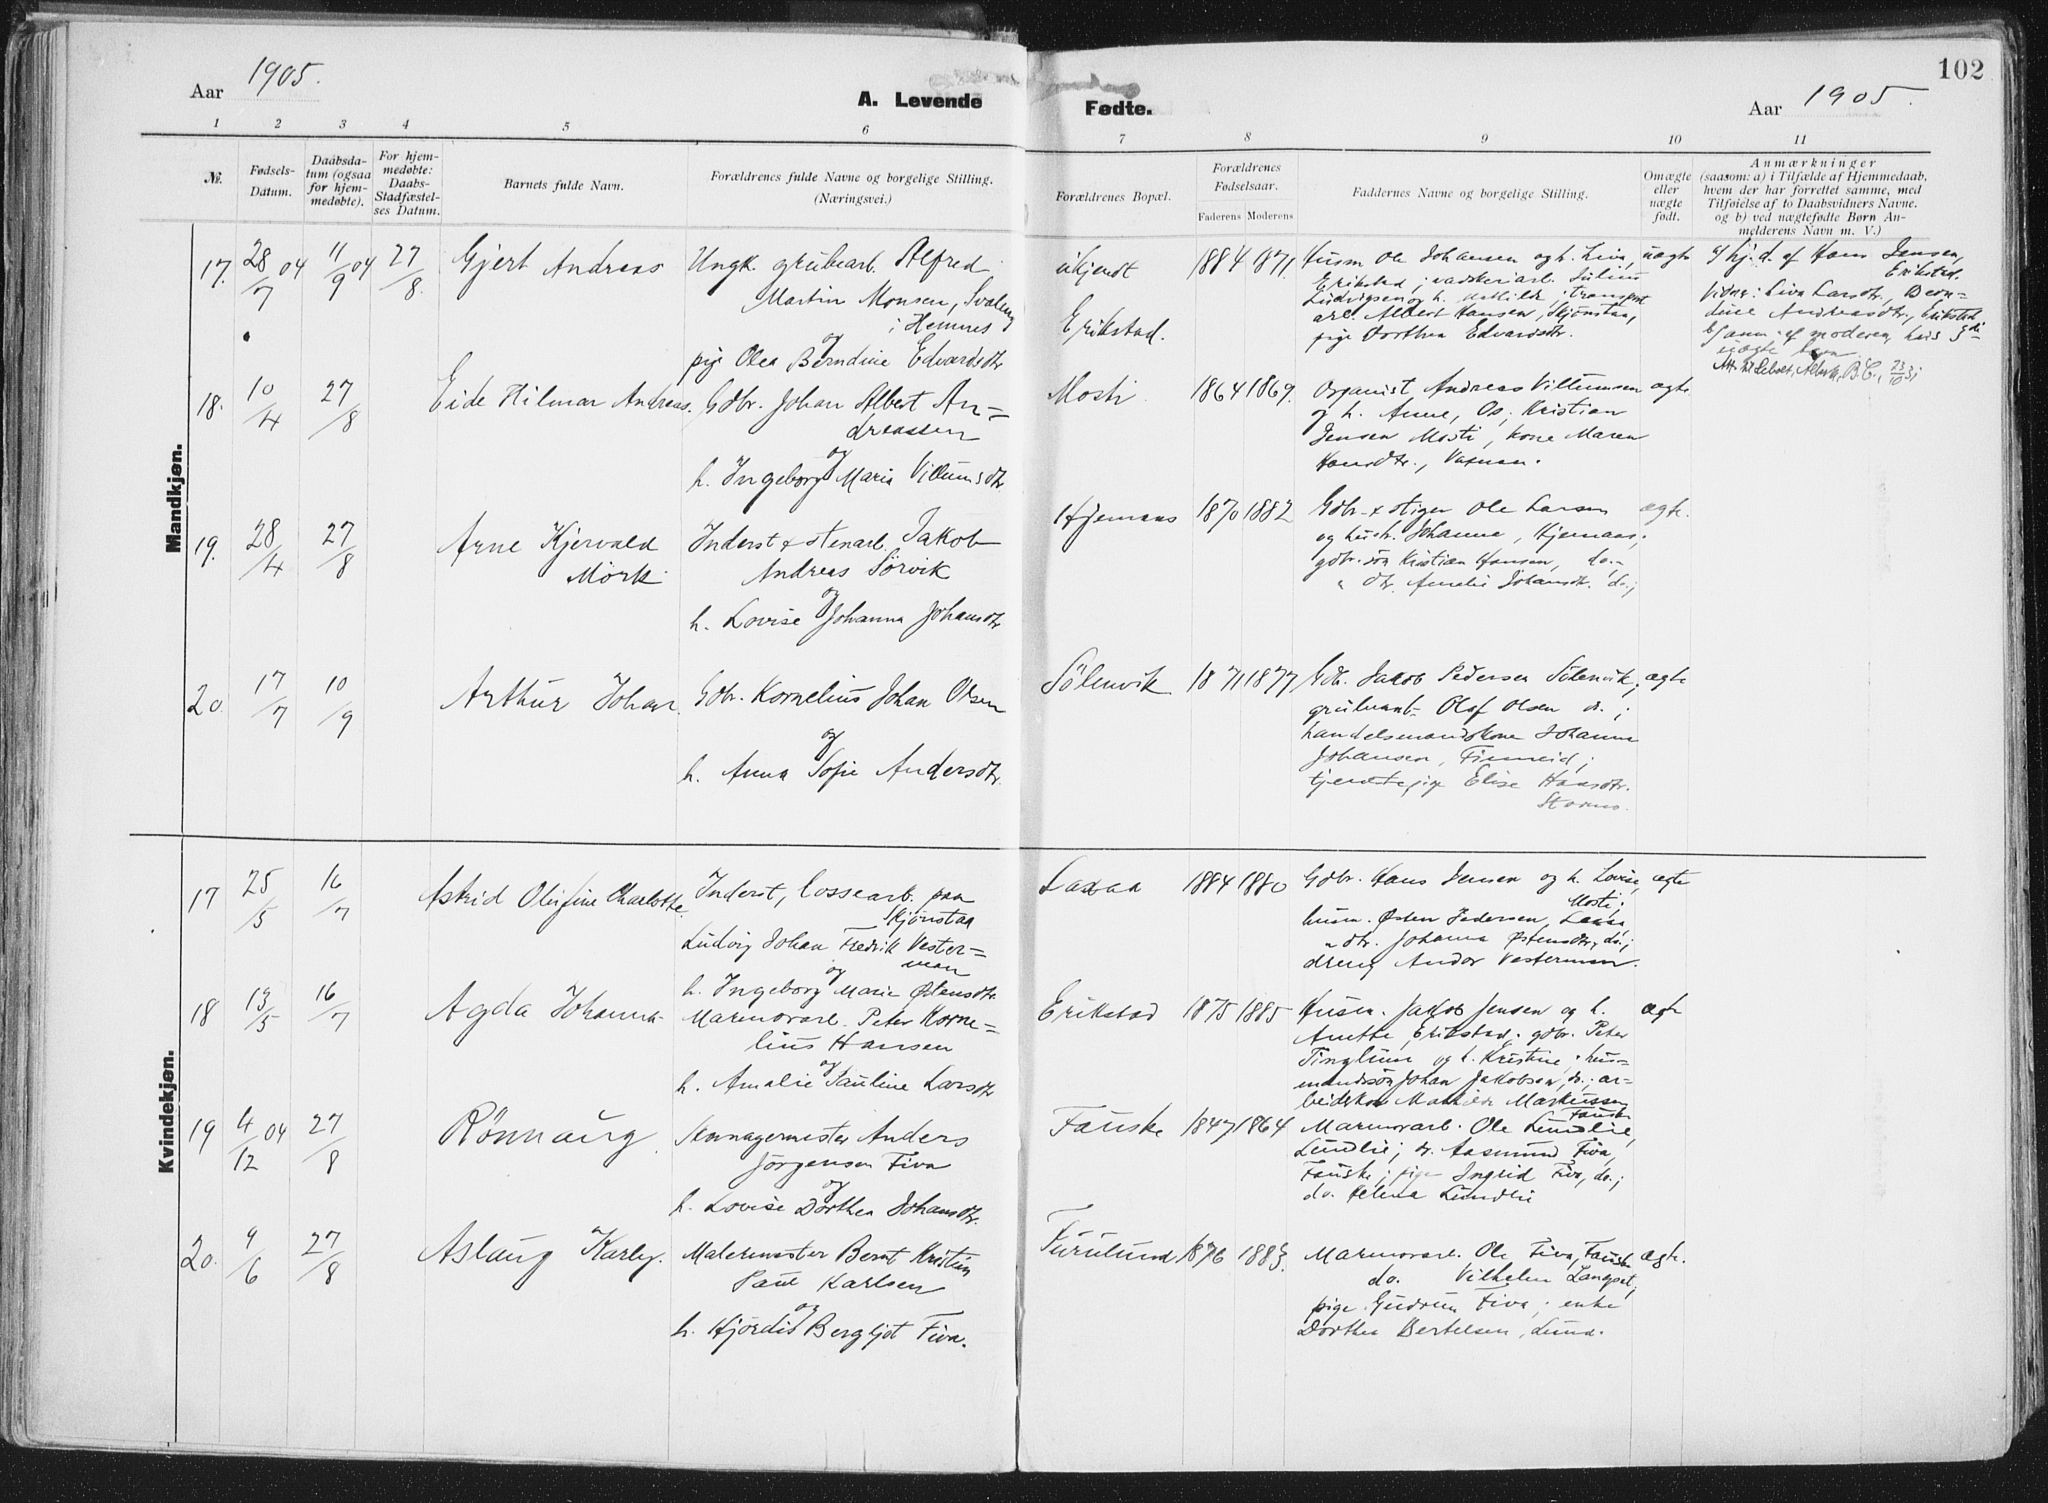 Aar 1905.
A. Levende
1 2 3 4 5 6
№.
Fødsels-
Datum.
Daabsda-
tum (ogsaa
for hjem-
medøbte).
For hjem-
medøbte:
Daabs-
Stadfæstel-
ses Datum.
Barnets fulde Navn.
Forældrenes fulde Navne og borgelige Stilling.
(Næringsvei.)
Mandkjøn.
17. 28/7 04 11/9 04 27/8. Gjert Andreas
Ungk. grubearb. Alfred
Martin Monsen,
i Hemnes
og
pige Olea Berndine Edvardsdtr
18. 10/4 27/8 Eide Hilmar Andreas.
Gdbr. Johan Albert An=
dreassen
og
h. Ingeborg Maria Villumsdtr.
19. 28/4 27/8 Arne Kjervald
Mörk
Inderst & stenarb. Jakob
Andreas Sörvik
og
h. Lovise Johanna Johansdtr
20. 17/7 10/9 Arthur Johan.
Gdbr. Kornelius Johan Olsen
og
h. Anna Sofie Andersdtr.
Kvindekjøn.
17 25/5 16/7 Astrid Olufine Charlotte.
Inderst, lossearb. paa
Skjönstaa
Ludvig Johan Fredrik Vester=
man
og
h. Ingeborg Marie Østensdtr.
18 13/5 16/7 Agda Johanna
Marmorarb. Peter Korne=
lius Hansen
og
h. Amalie Pauline Larsdtr
19 4/12 04 27/8 Rønnaug.
Skomagermester Anders
Jørgensen Fiva
og
h. Lovise Dorthea Johansdtr.
20. 9/6 27/8 Aslaug Karly.
Malermester Bernt Kristian
Paul Karlsen
og
h. Hjördis Bergljot Fiva.
102
Fødte.
Aar 1905.
7 8 9 10 11
Forældrenes Bopæl.
Forældrenes
Fødselsaar.
Faderens Moderens
Faddernes Navne og borgelige Stilling.
Omægte
eller
uægte
født.
Anmærkninger
(saasom: a) i Tilfælde af Hjemmedaab,
hvem der har forrettet samme, med
Tilføielse af to Daabsvidners Navne.
og b) ved uægtefødte Børn An-
melderens Navn m. V.)
ukjendt
Erikstad.
1884 1871.
Husm. Ole Johansen og h. Lina, uægte
Erikstad; vaskeriarb. Julius
Ludvigsen og h. Mathilde; transport
arb. Albert Hansen, Skjönstaa,
pige Dorthea Edvardsdtr.
a) hj.d. af Hans Jensen,
Erikstad.
Vidner: Lina Larsdtr., Bern=
dine Andreasdtr., Erikstad
b) anm. af moderen, hvis
uægte barn.
Mosti 1864 1869.
Organist Andreas Villumsen ægte
og h. Anne, Os; Kristian
Jensen Mosti, kone Maren
Hansdtr.,
Hjemaas 1870 1882
Gdbr. & stiger Ole Larsen ægte.
og hustr. Johanna, Hjemaas;
gdbr.søn Kristian Hansen, do.,
" dtr. Amalie Johansdtr. do.;
Sölenvik 1871 1877
Gdbr. Jakob Pedersen Sölenvik; ægte
grubearb. Olaf Olsen do.;
handelsmandskone Johanna
Johansen, Finneid;
tjenestepige Elise Hansdtr.
Laxaa 1884 1880
Gdbr. Hans Jensen og h. Lovise, ægte
Mosti;
husm. Østen Pedersen, Laxaa,
" dtr. Johanna Østensdtr., do.;
dreng Andor Vesterman.
Erikstad 1875 1885
Husm. Jakob Jensen og h. ægte
Anette, Erikstad; gdbr. Peter
og h. Kristine; hus=
mandssøn Johan Jakobsen, do.; ar=
beiderkone Mathilde Markussen
Fauske
Fauske 1847 1864
Marmorarb. Ole Lundlie,
Lundlie; do. Aasmund Fiva,
Fauske; pige Ingrid Fiva, do.;
do. Helena Lundlie
Furulund 1876 1883.
Marmorarb. Ole Fiva, Fauske ægte.
do. Vilhelm Langset,
pige Gudrun Fiva; enke
Dorthea Bertelsen, Lund.